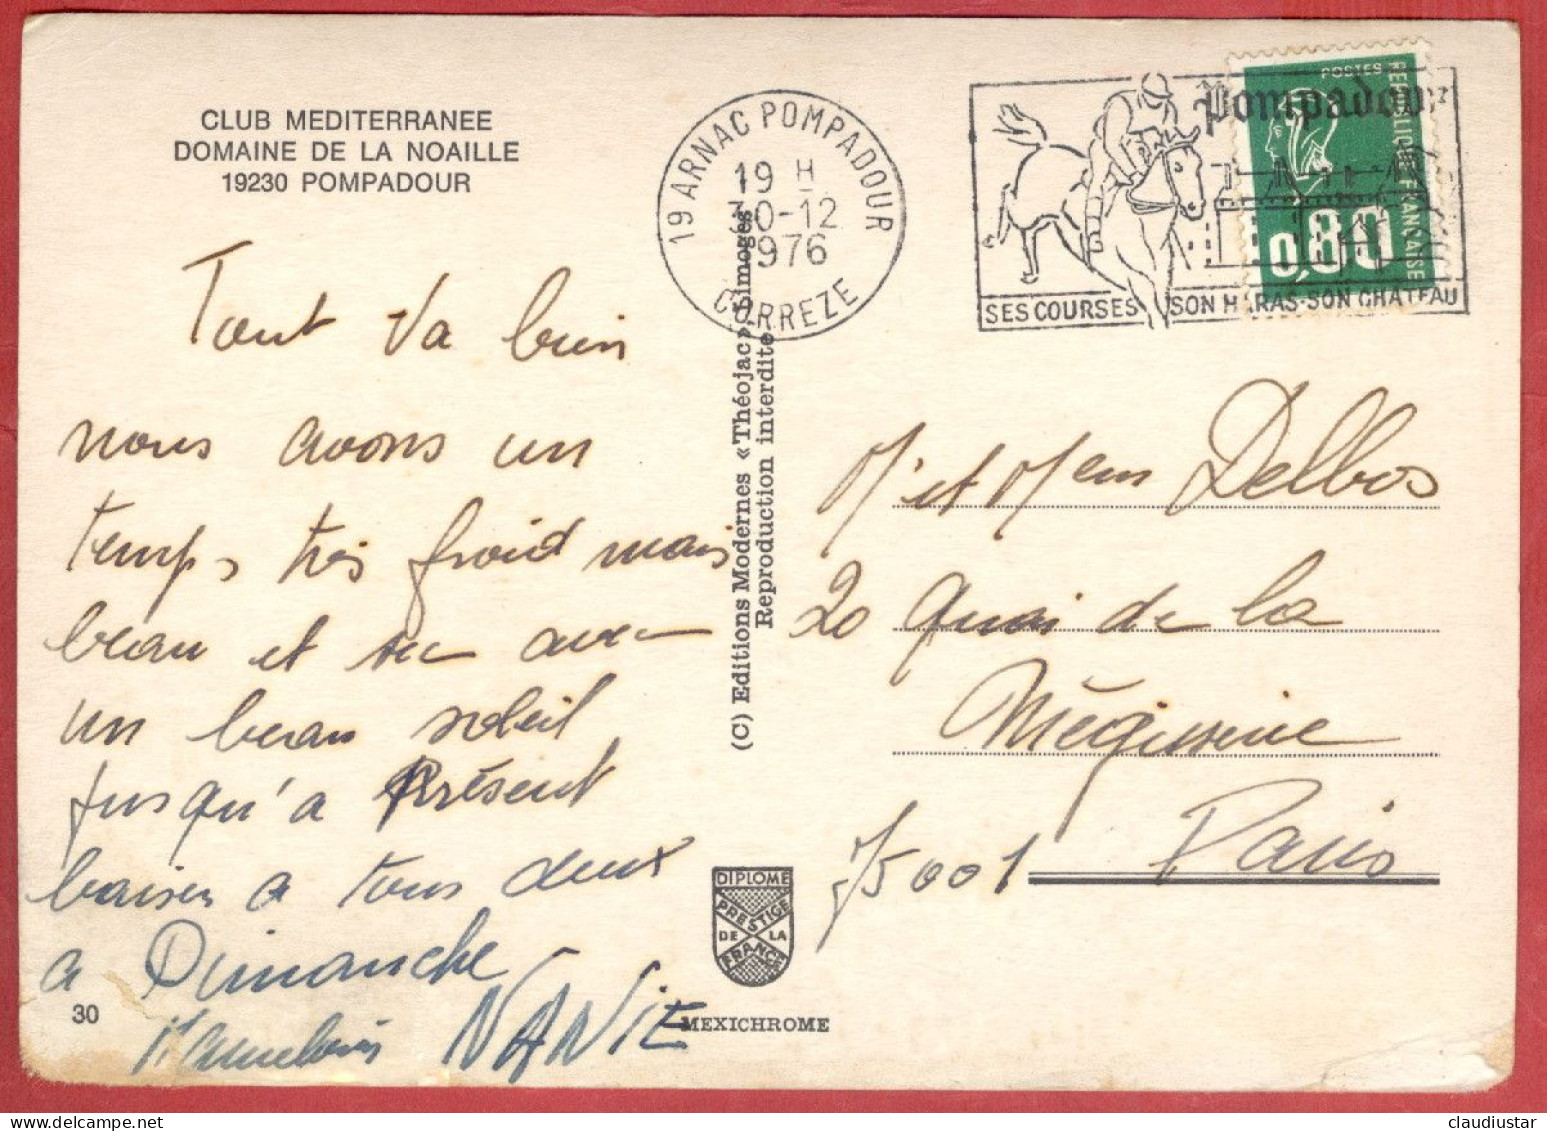 CLUB MEDITERRANEE
DOMAINE DE LA NOAILLE
19230 POMPADOUR
19 ARNAC POMPADOUR
19 H
30-12
1976
CORREZE
Pompadour
SES COURSES SON HARAS-SON CHATEAU
POSTES
REPUBLIQUE FRANÇAISE
0,80
Tout va bien
nous avons un
temps très froid mais
beau et sec avec
un beau soleil
jusqu'a Présent
baisers a tous deux
a Dimanche
NANIE
30
(C) Editions Modernes « Théojac » Limoges
Reproduction interdite
M et Mem Delbos
20 Quai de la
Mégisserie
75001 Paris
DIPLOME
PRESTIGE
DE LA
FRANCE
MEXICHROME
claudiustar